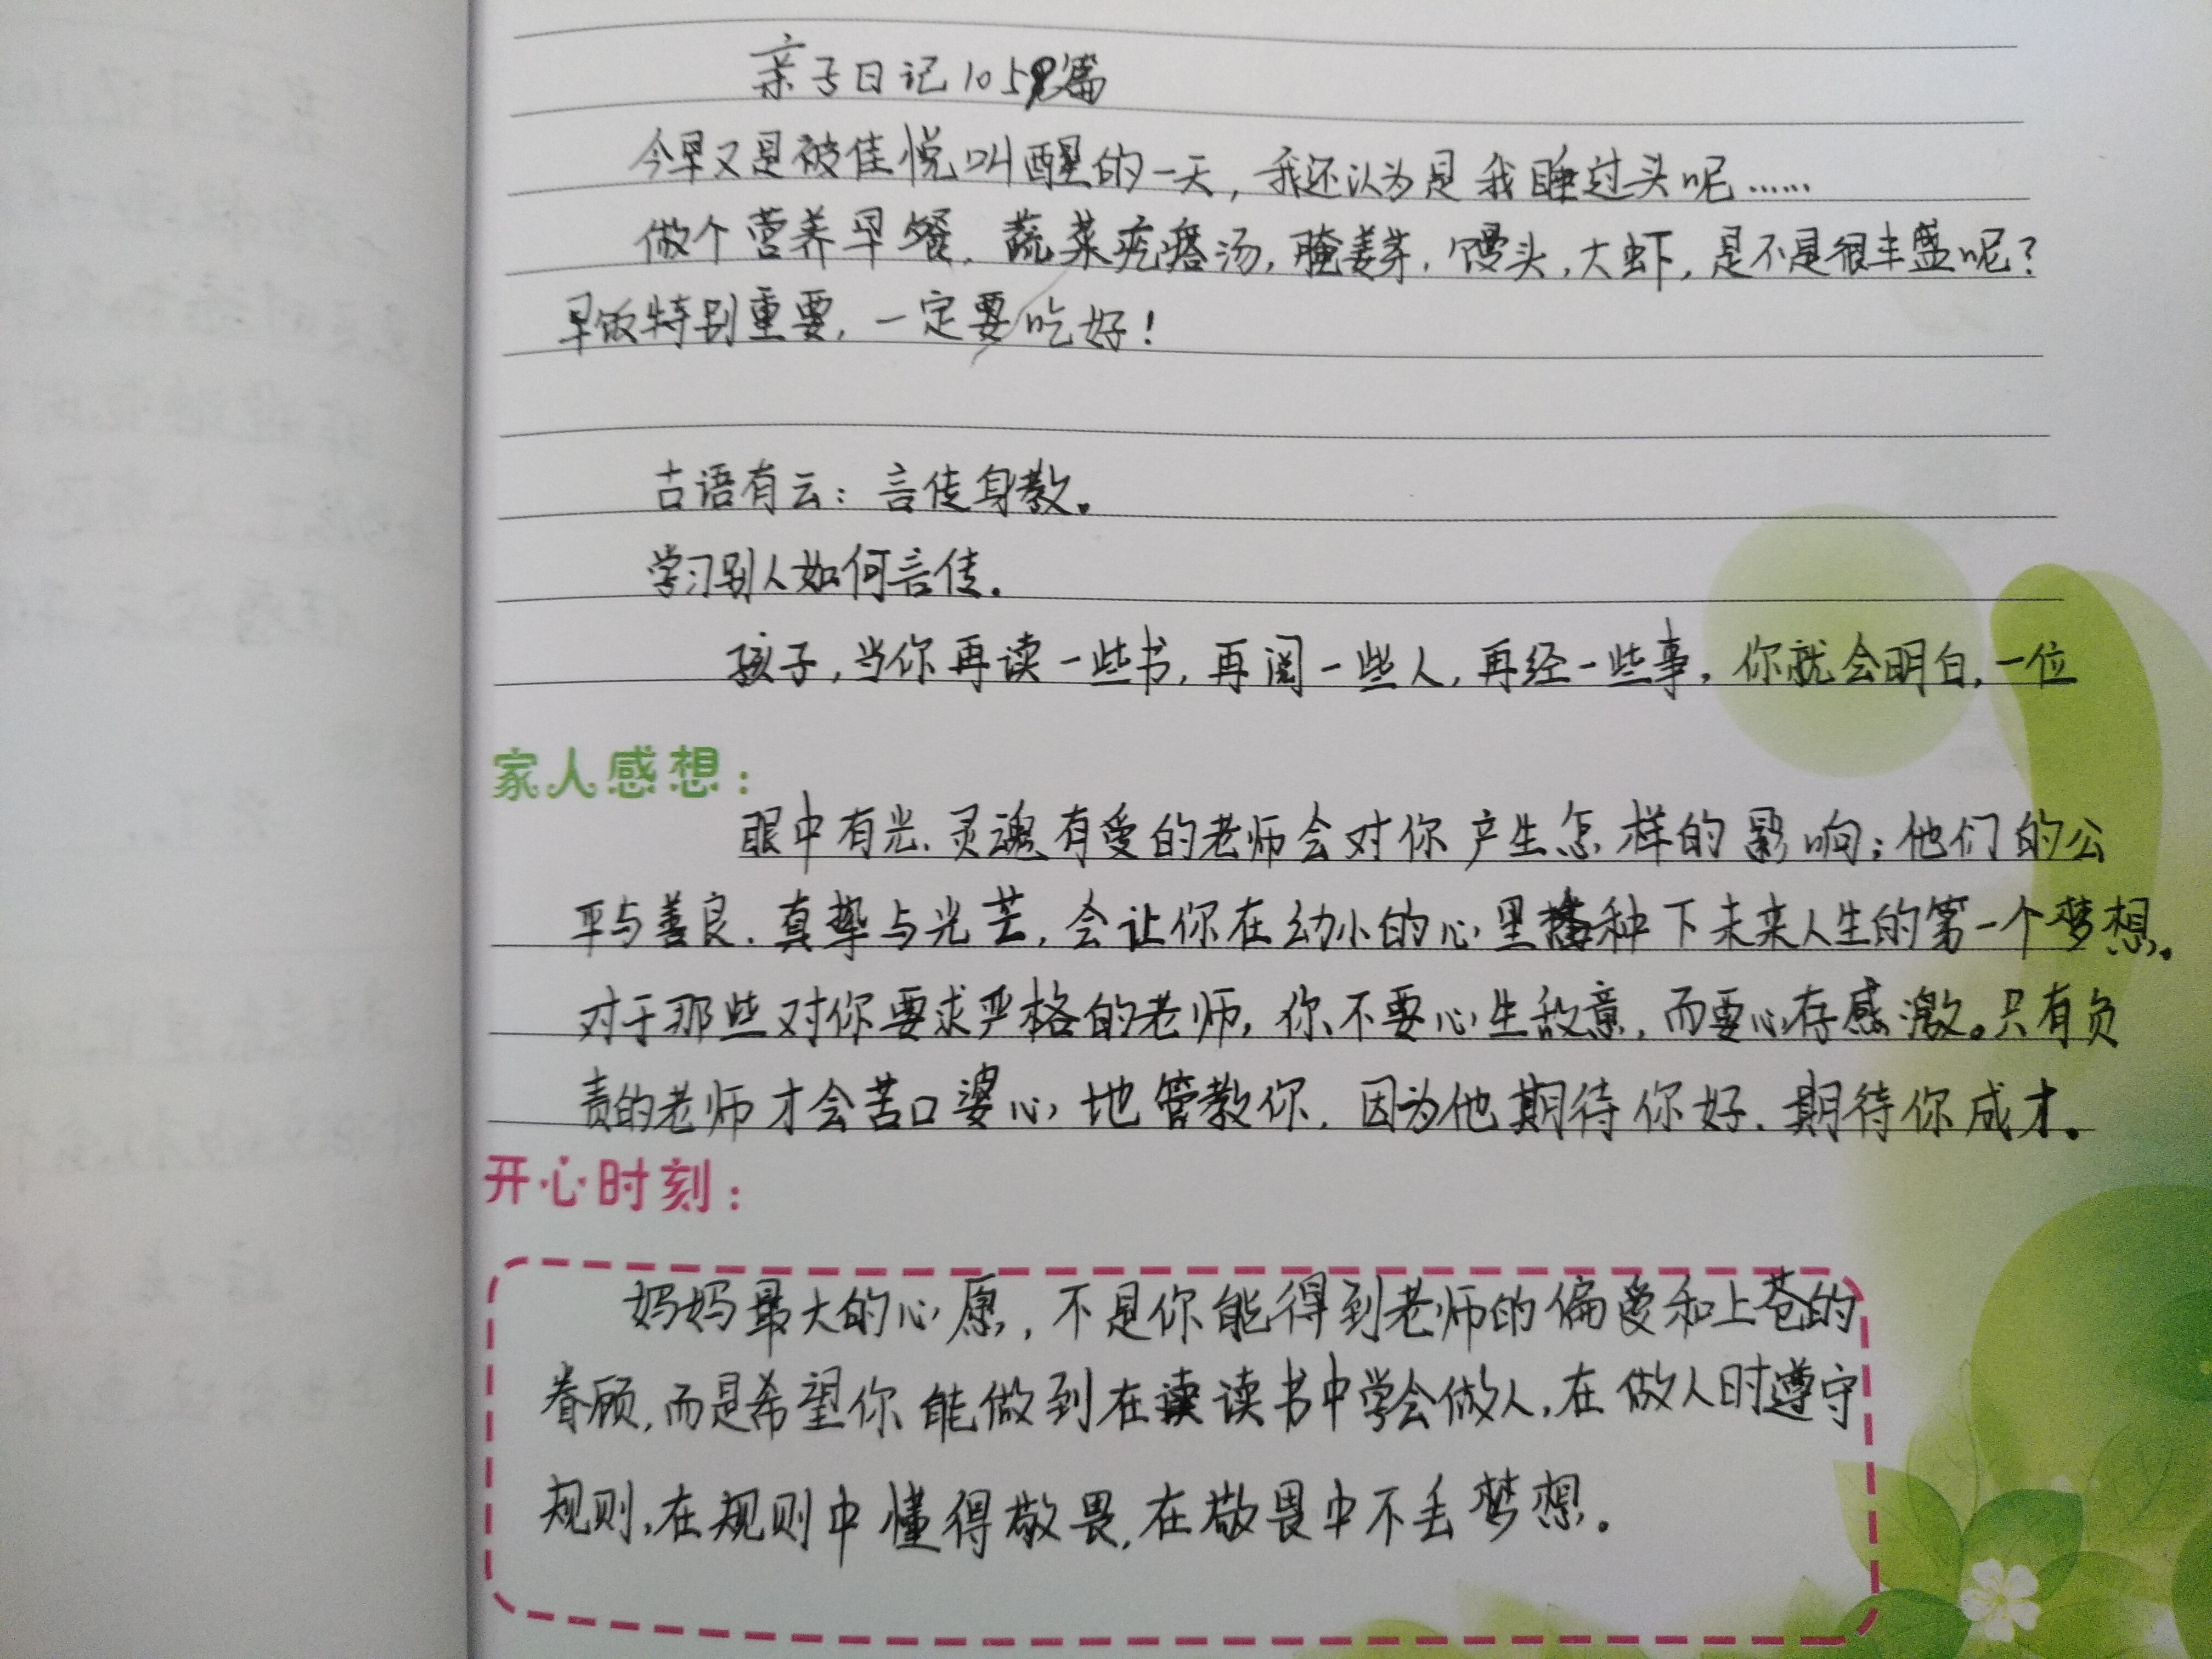 亲子日记105篇
今早又是被佳悦叫醒的一天，我还认为是我睡过头呢……
做个营养早餐，蔬菜疙瘩汤，腌姜芽，馒头，大虾，是不是很丰盛呢？
早饭特别重要，一定要吃好！
古语有云：言传身教。
学习别人如何言传。
孩子，当你再读一些书，再阅一些人，再经一些事，你就会明白，一位
家人感想：
眼中有光、灵魂有爱的老师会对你产生怎样的影响；他们的公
平与善良、真挚与光芒，会让你在幼小的心里播种下未来人生的第一个梦想。
对于那些对你要求严格的老师，你不要心生敌意，而要心存感激。只有负
责的老师才会苦口婆心地管教你，因为他期待你好、期待你成才。
开心时刻：
妈妈最大的心愿，不是你能得到老师的偏爱和上苍的
眷顾，而是希望你能做到在读读书中学会做人，在做人时遵守
规则，在规则中懂得敬畏，在敬畏中不丢梦想。